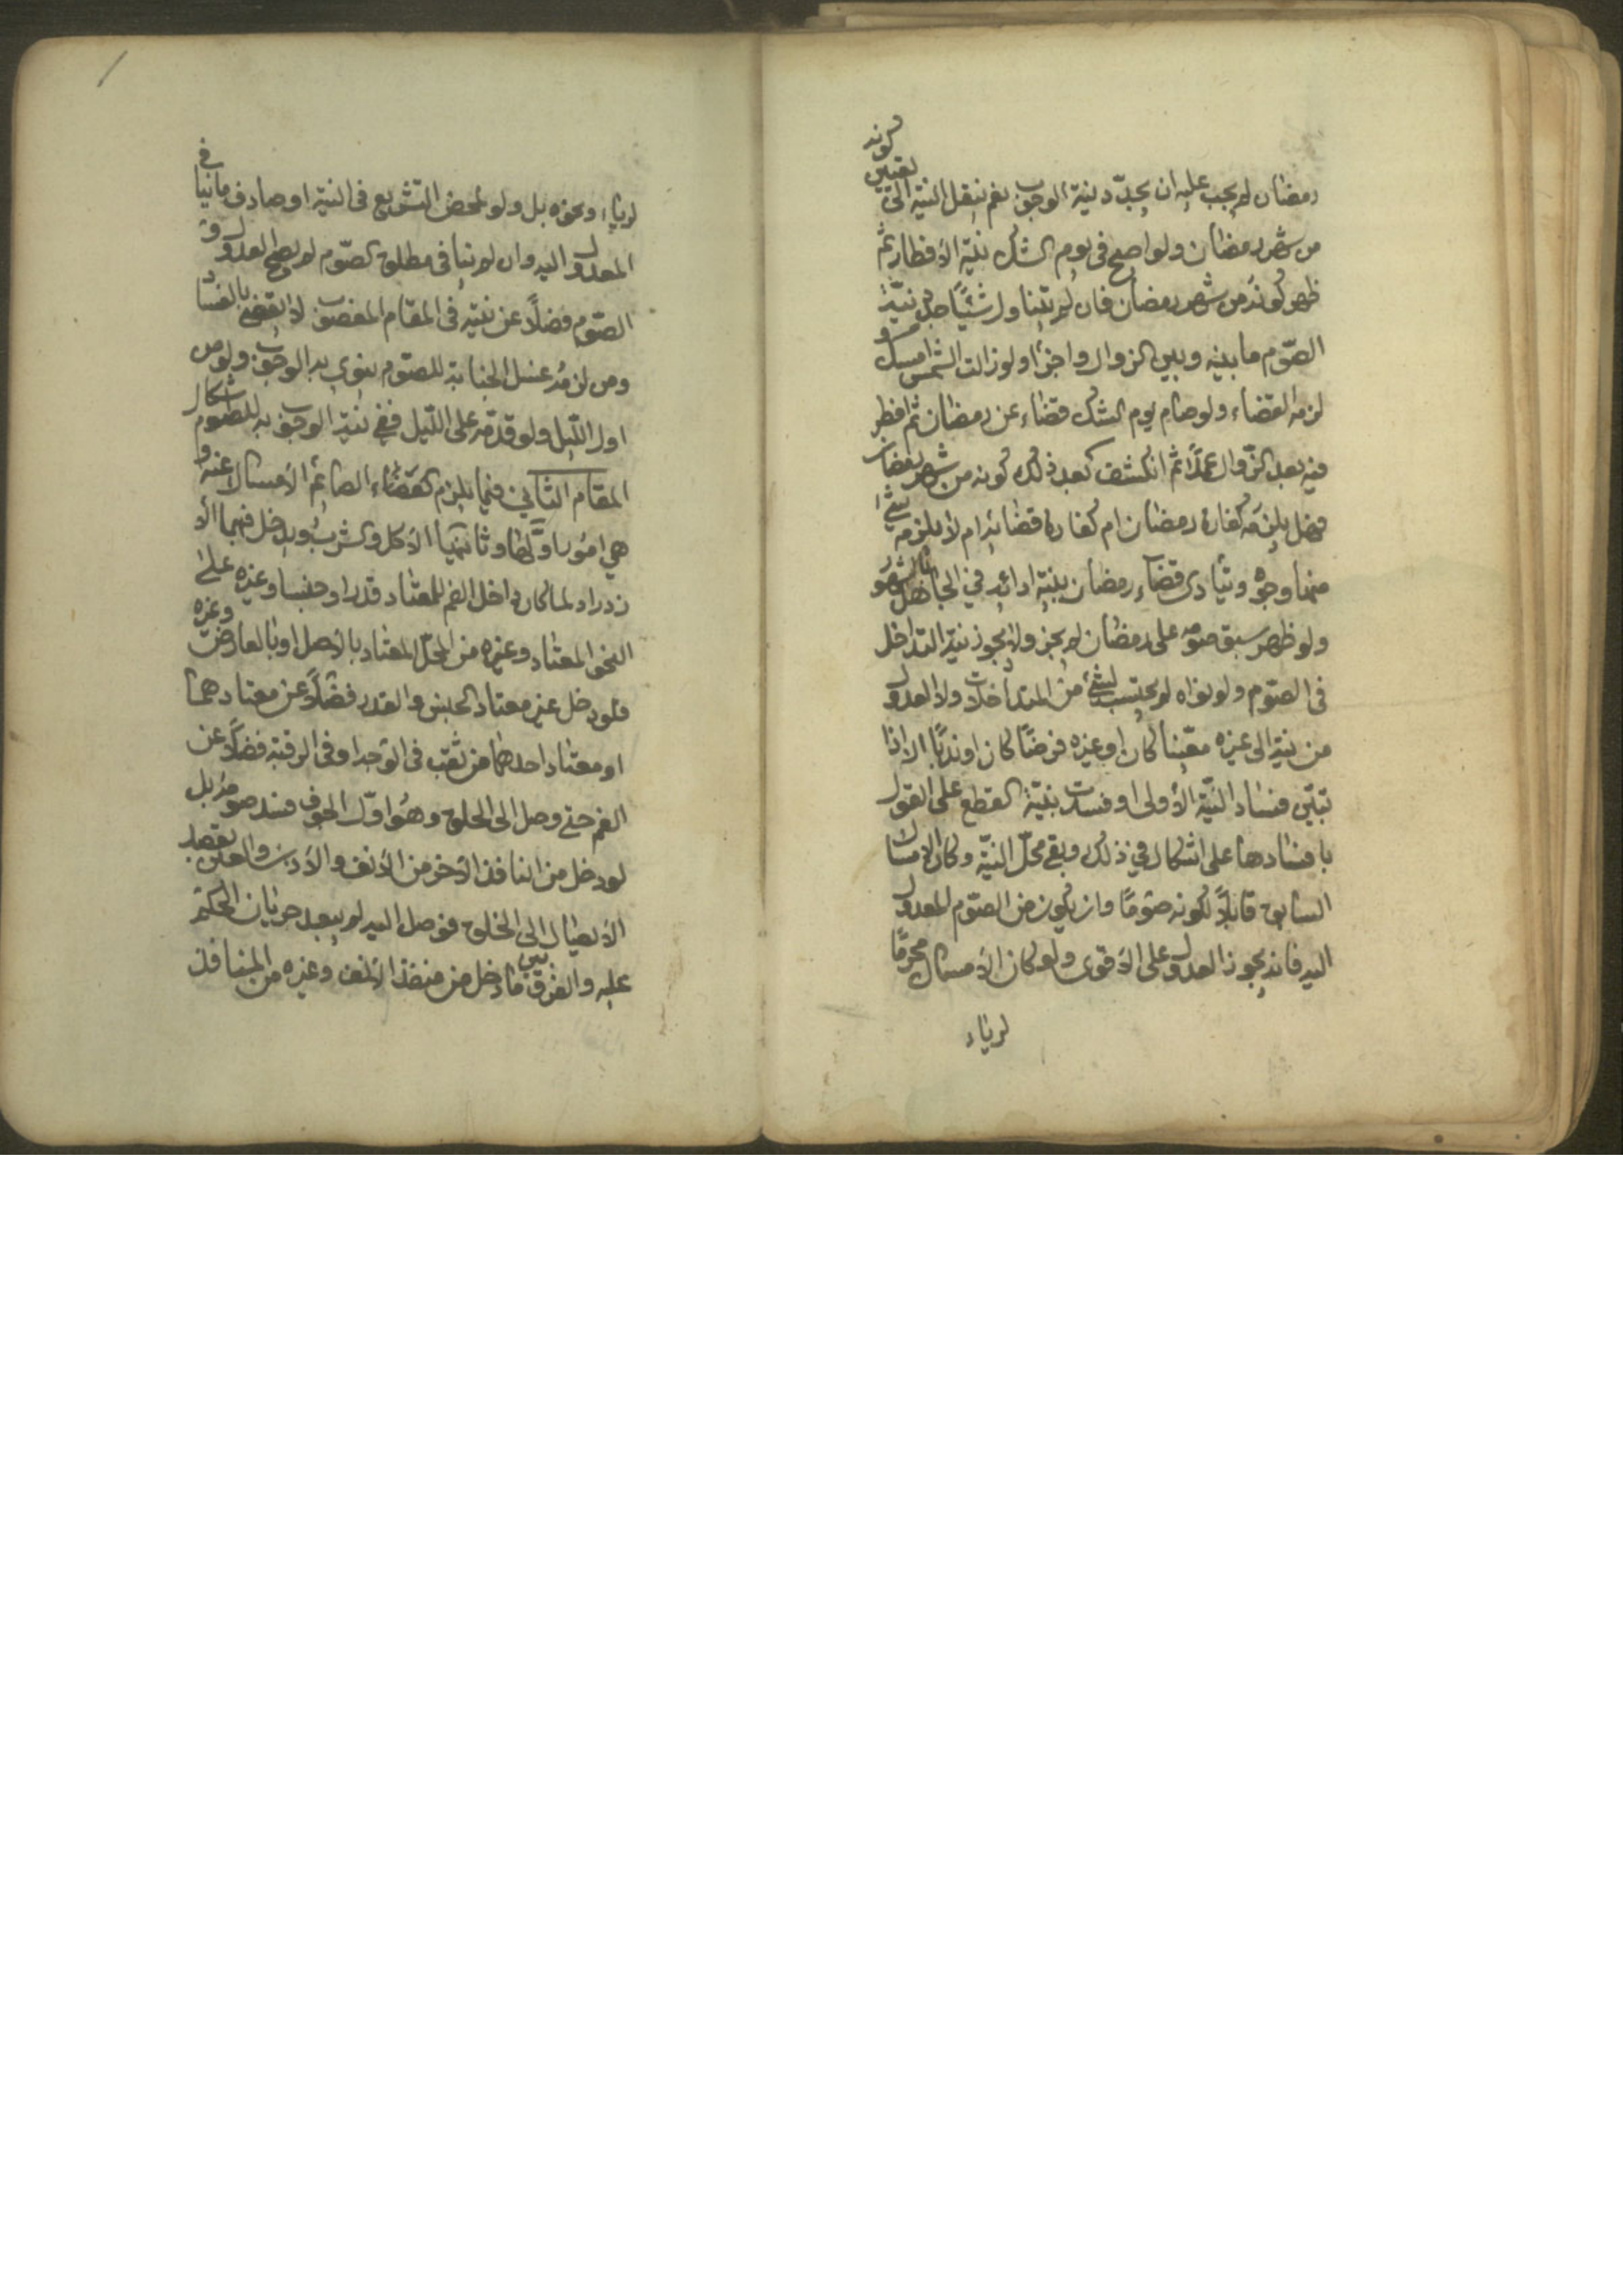 رمضان لم يجب عليه ان يجدد نية الوجوب نعم ينقل النية الى تعيين كونه
من شهر رمضان ولو اصبح فى يوم الشك بنية الافطار ثم
ظهر كونه من شهر رمضان فان لم يتناول شيئاً جدد نيّة
الصّوم ما بينه وبين الزوال واجزأ ولو زالت الشمس امسك و
لزمه القضاء ولو صام يوم الشك قضاء عن رمضان ثم افطر
فيه بعد الزّوال عمداً ثم انكشف بعد ذلك كونه من شهر رمضان
فهل يلزمه كفارة رمضان ام كفارة قضائه ام لا يلزمه شئ
منهما وجوه ويتأدى قضاء رمضان بنية ادائه في الجاهل بالشهور
ولو ظهر سبق صومه على رمضان لم يجز ولا يجوز نية التداخل
فى الصّوم ولو نواه لم يحتسب لشئ من المتداخلات ولا العدول
من نية الى غيره معيّناً كان او غيره فرضاً كان او ندباً الا اذا
تبيّن فساد النيّة الأولى او فسدت بنيّة القطع على القول
بافسادها على اشكال في ذلك وبقى محلّ النيّة وكان الامساك
السابق قابلاً لكونه صوماً وان يكون من الصّوم المعدول
اليه فانه يجوز العدول على الأقوى ولو كان الأمساك محرماً
لرياء
لرياء ونحوه بل ولو لمحض التشريع فى النية او صادف ما نيا فى
المعدول اليه وان لم نيافى مطلق الصّوم لم يصح العدول و
الصّوم فضلاً عن نيّته فى المقام المغصوب لا يقضى بالفساد
ومن لزمه غسل الجنابة للصّوم ينوى به الوجوب ولو من
اول اللّيل ولو قدّمه على اللّيل ففى نيّة الوجوب به للصّوم اشكال
المقام الثاني فيما يلزم الصائم الأمساك عنه و
هي امور اولها وثانيها الأكل والشرب ويدخل فيهما الأ
زدراد لما كان داخل الفم للمعتاد قدرا وجنسا وغيره على
النحو المعتاد وغيره من المحلّ المعتاد بالأصل او بالعارض وغيره
فلو دخل غير معتاد الجنس والقدر فضلاً عن معتادهما
او معتاد احدهما من ثقب فى الوجه او فى الرقبة فضلاً عن
الفم حتى وصل الى الحلق وهو اوّل الجوف فسد صومه بل
لو دخل من النافذ الأخر من الأنف والأذن والعين بقصد
الأيصال الى الحلق فوصل اليه لم يبعد جريان الحكم
عليه والفرق بين ما دخل من منفذ الأنف وغيره من المنافذ